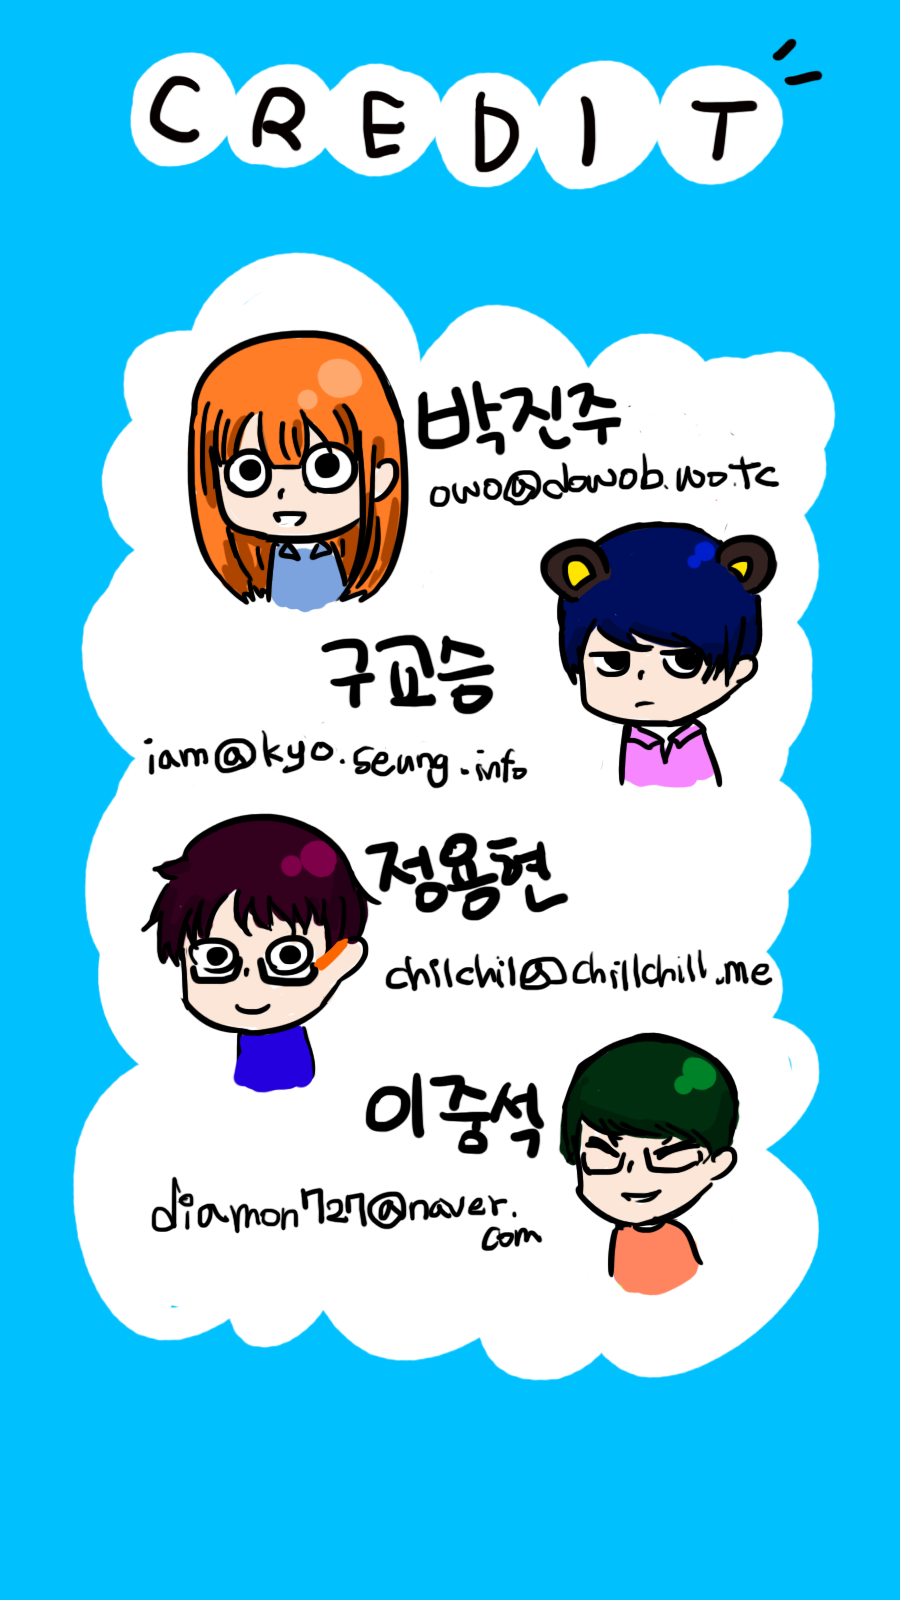 CREDIT
박진주
owo@dowob.wo.tc
구교승
iam@kyo.seung.info
정용현
chilchil@chillchill.me
이중석
diamon727@naver.
com